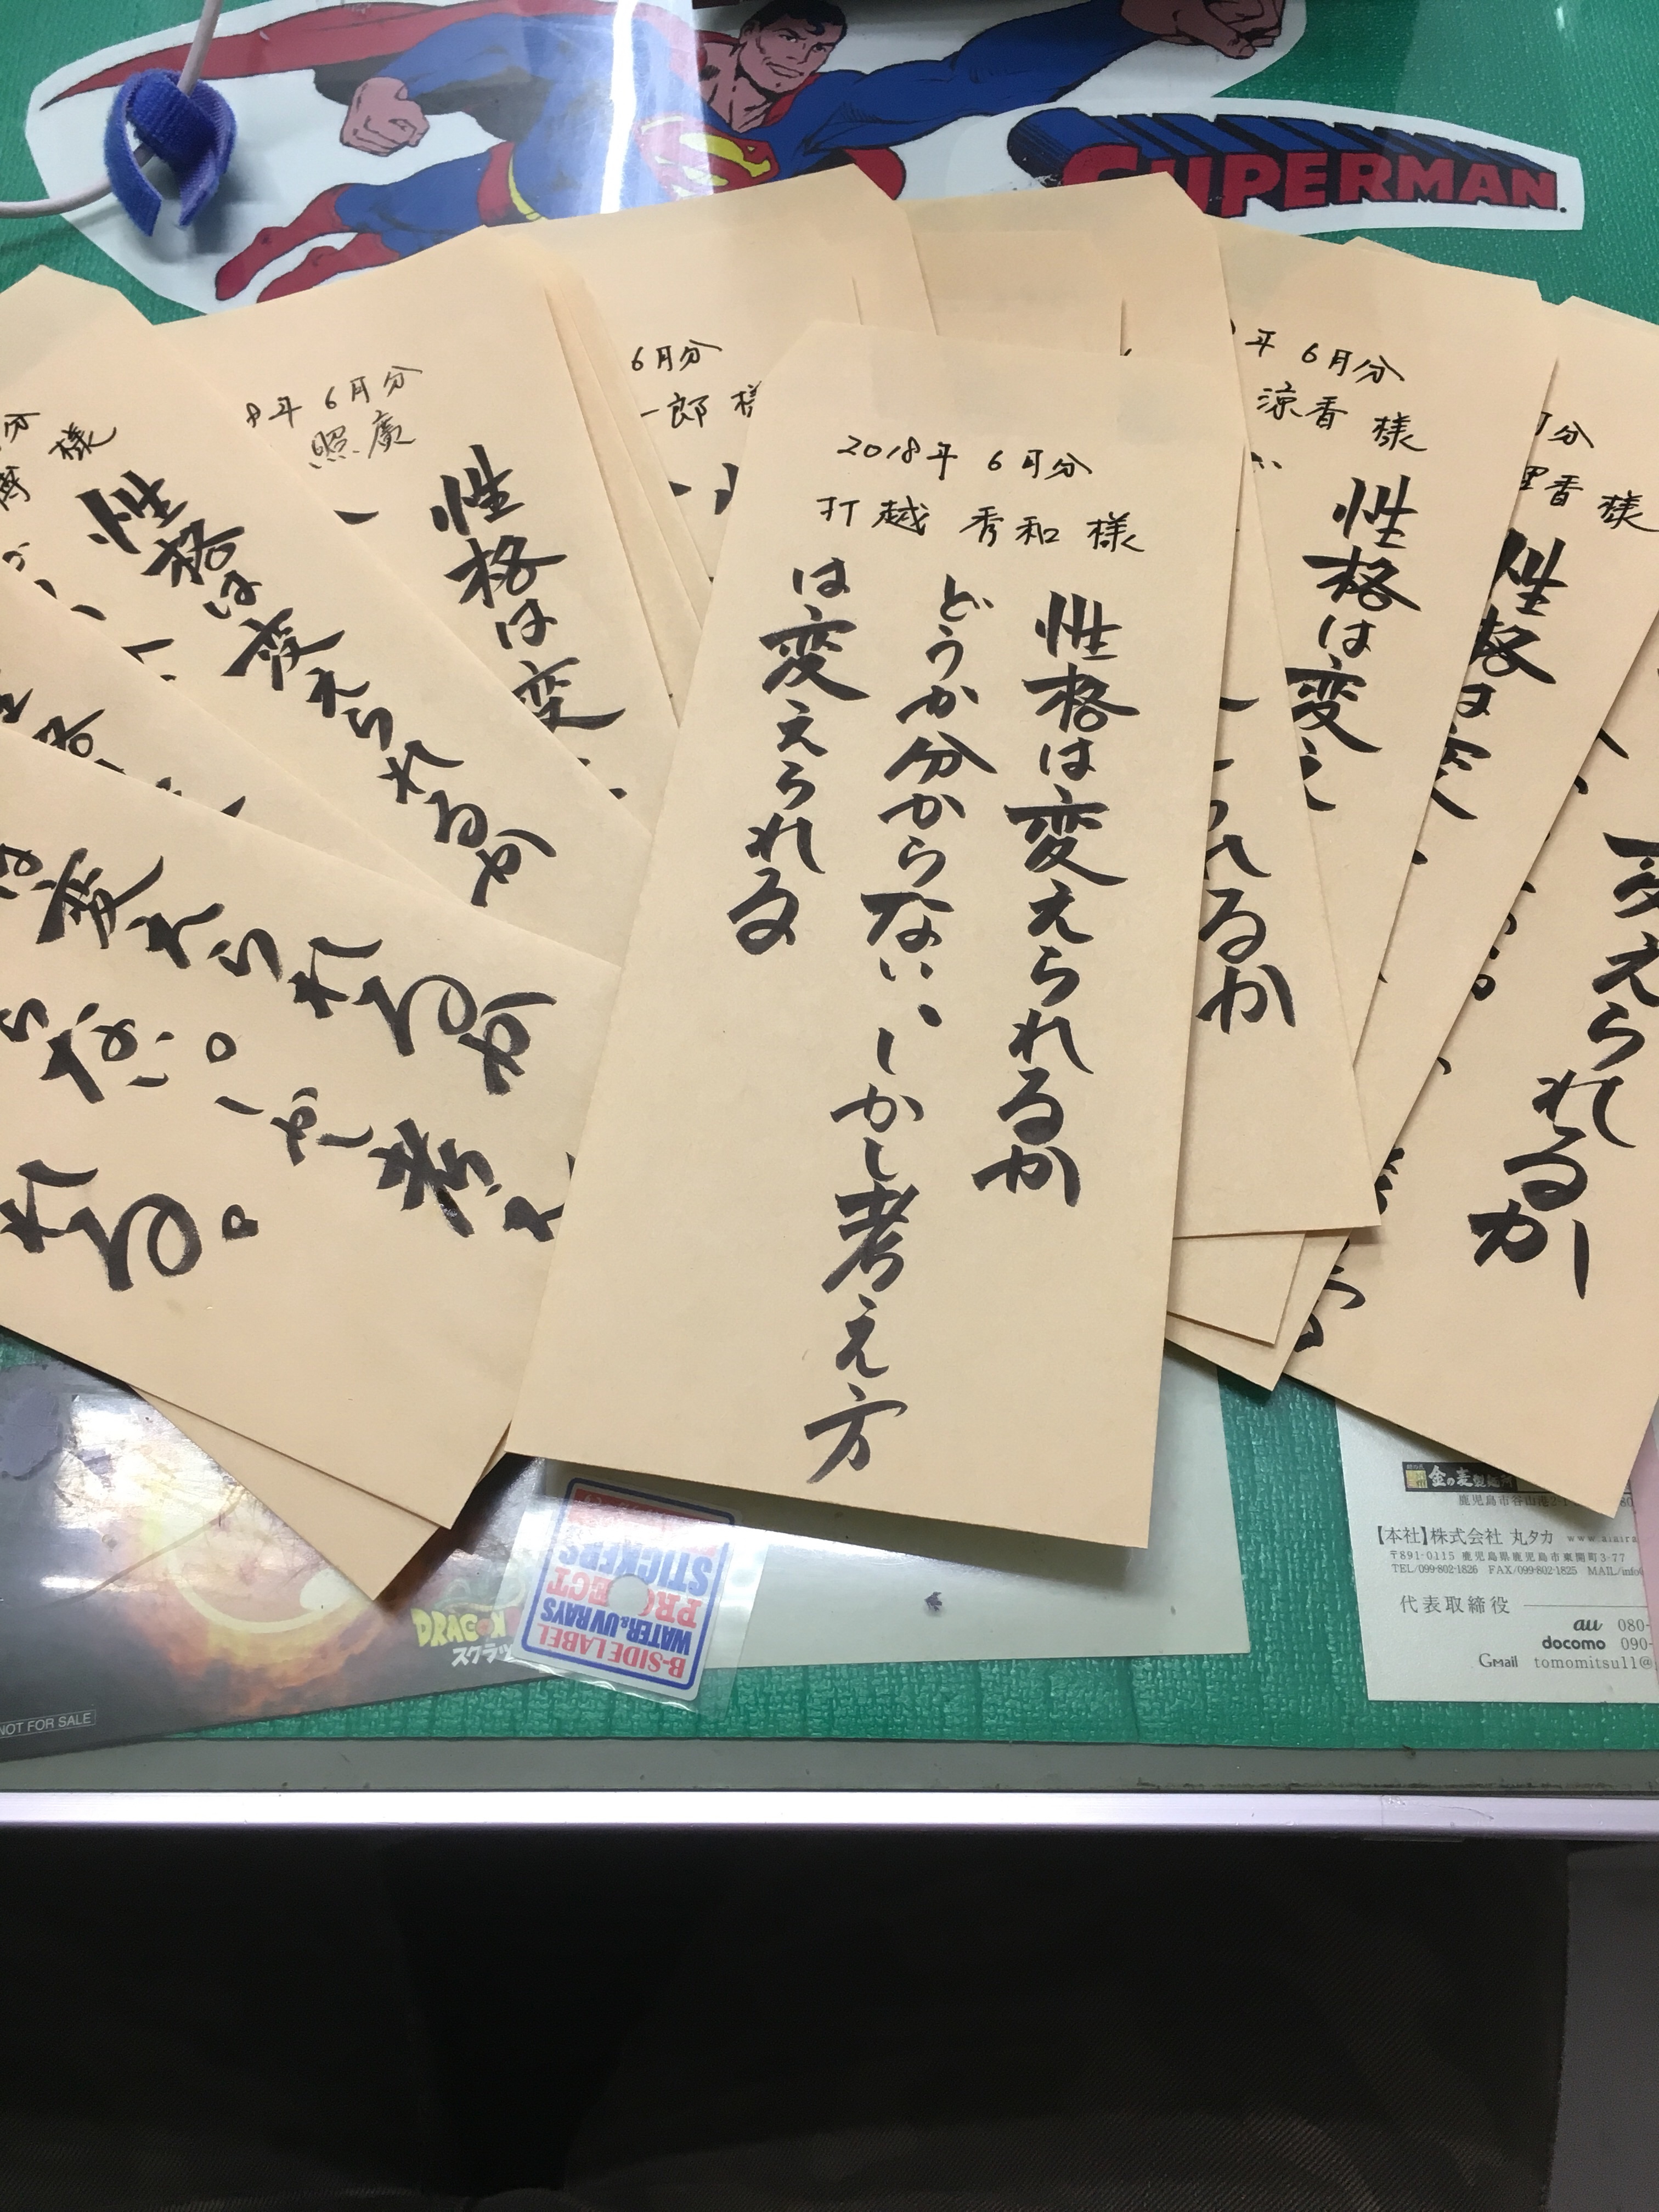 SUPERMAN.
6月分
2018年 6月分
打越 秀和 様
性格は変えられるか
どうか分からない、しかし考え方
は変えられる
分
様
性格は変えられるか
年 6月分
照廣
性格は変
6月分
一郎 様
は変えられるか
らない。しかし考え
れる。
年 6月分
涼香 様
性格は変え
れるか
月分
里香 様
性格は変
変えられるか
DRAGON
スクラッ
NOT FOR SALE
B-SIDE LABEL
WATER&UVRAYS
PROJECT
STICKERS
金の麦製麺所
鹿児島市谷山港2-1
【本社】株式会社 丸タカ
〒891-0115 鹿児島県鹿児島市東開町3-77
TEL/099-802-1826 FAX/099-802-1825 MAIL/info
代表取締役
au 080-
docomo 090-
Gmail tomomitsu11@